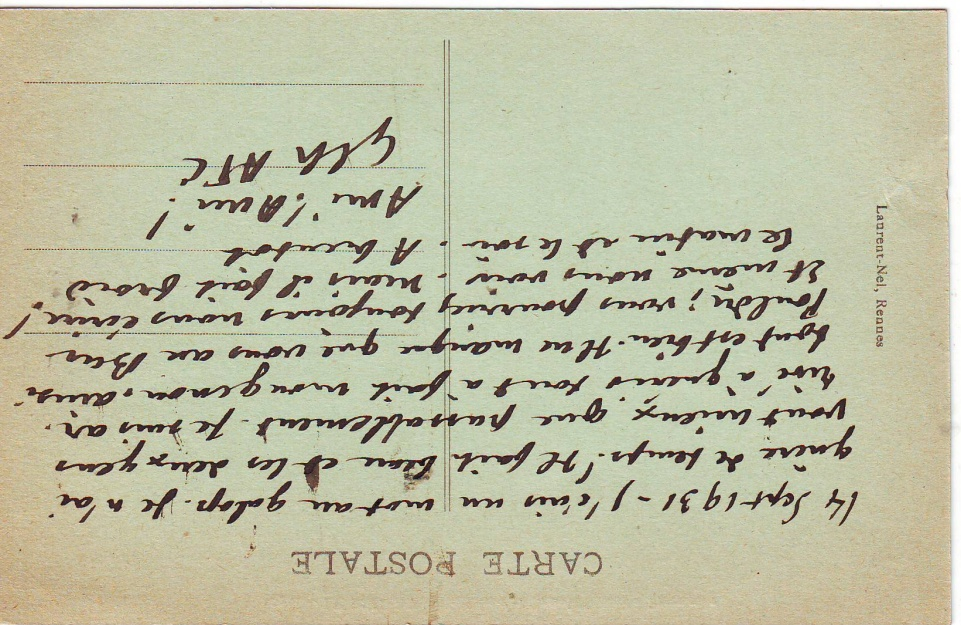 CARTE POSTALE
14 Sept 1931 - J'écris un mot au galop. Je n'ai
guère de temps. Il fait beau et les deux yeux
vont mieux que passablement. Je suis ar-
rivé à guérir tout à fait mon genou. ainsi
tout est bien. Il ne manque que vous au Bas
Pouldu; vous pourriez toujours nous écrire!
Et même nous voir. Mais il fait froid
le matin et le soir. A bientot
Ami! Ami!
Laurent-Nel, Rennes